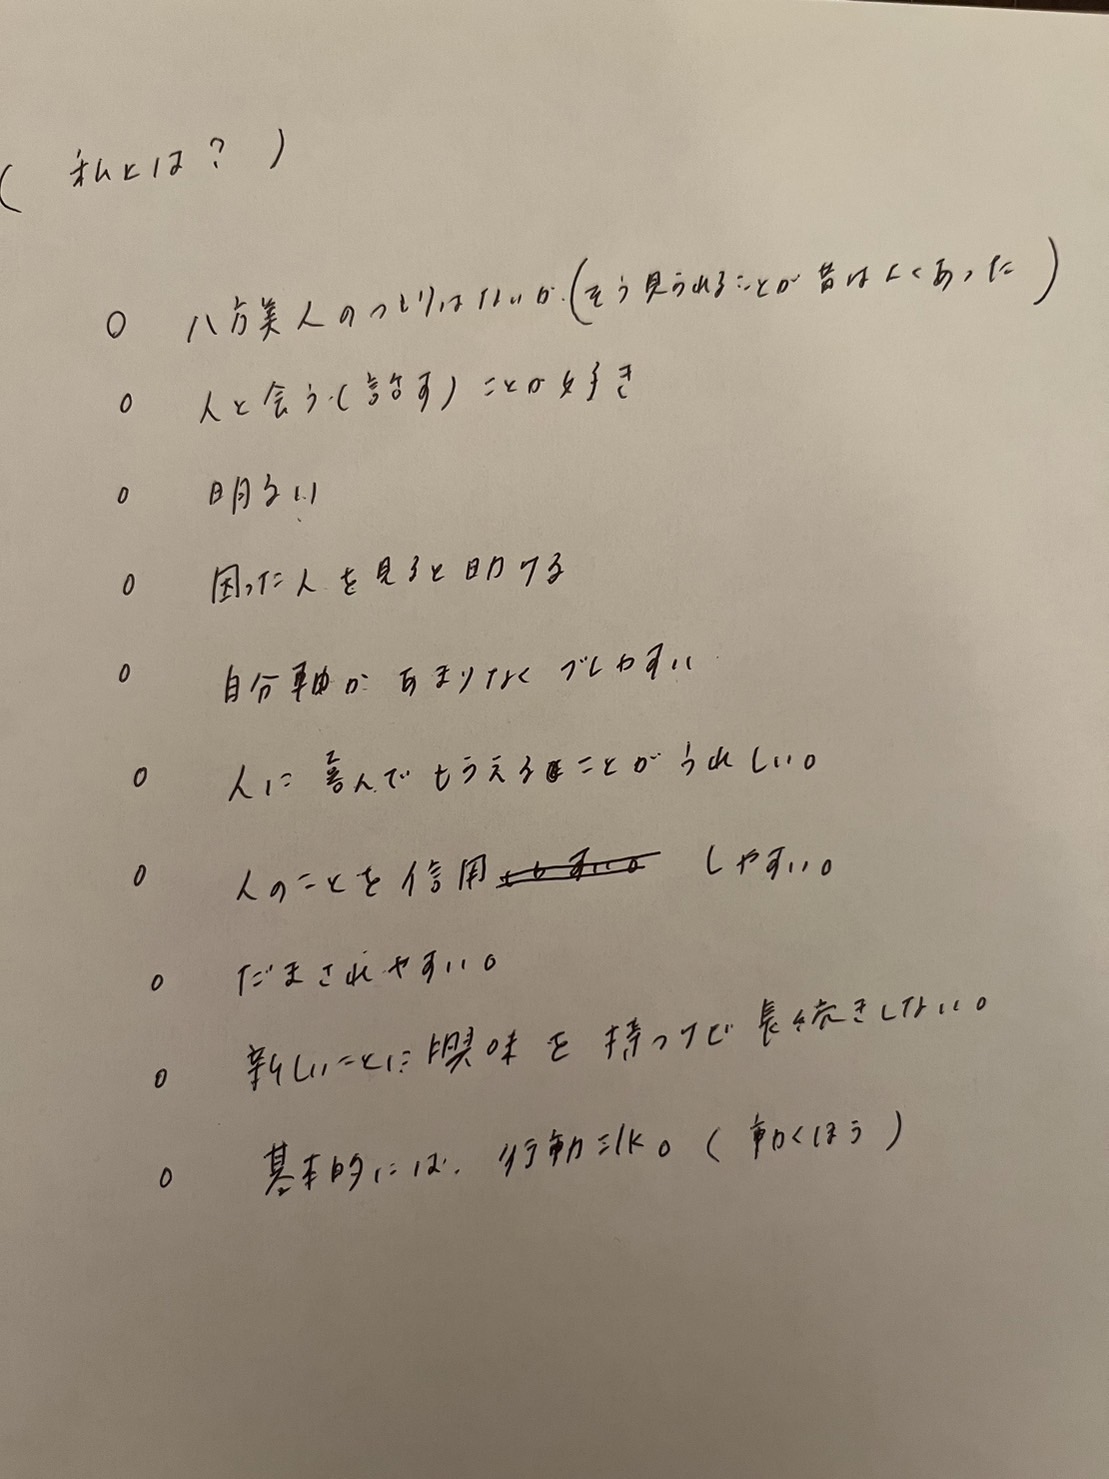 ( 私とは? )
○ 八方美人のつもりはないが(そう見られることが昔はよくあった)
○ 人と会う(話す)ことが好き
○ 明るい
○ 困った人を見ると助ける
○ 自分軸があまりなくブレやすい
○ 人に喜んでもらえることがうれしい。
○ 人のことを信用しやすい。
○ だまされやすい。
○ 新しいことに興味を持つけど長続きしない。
○ 基本的には、行動派。(動くほう)